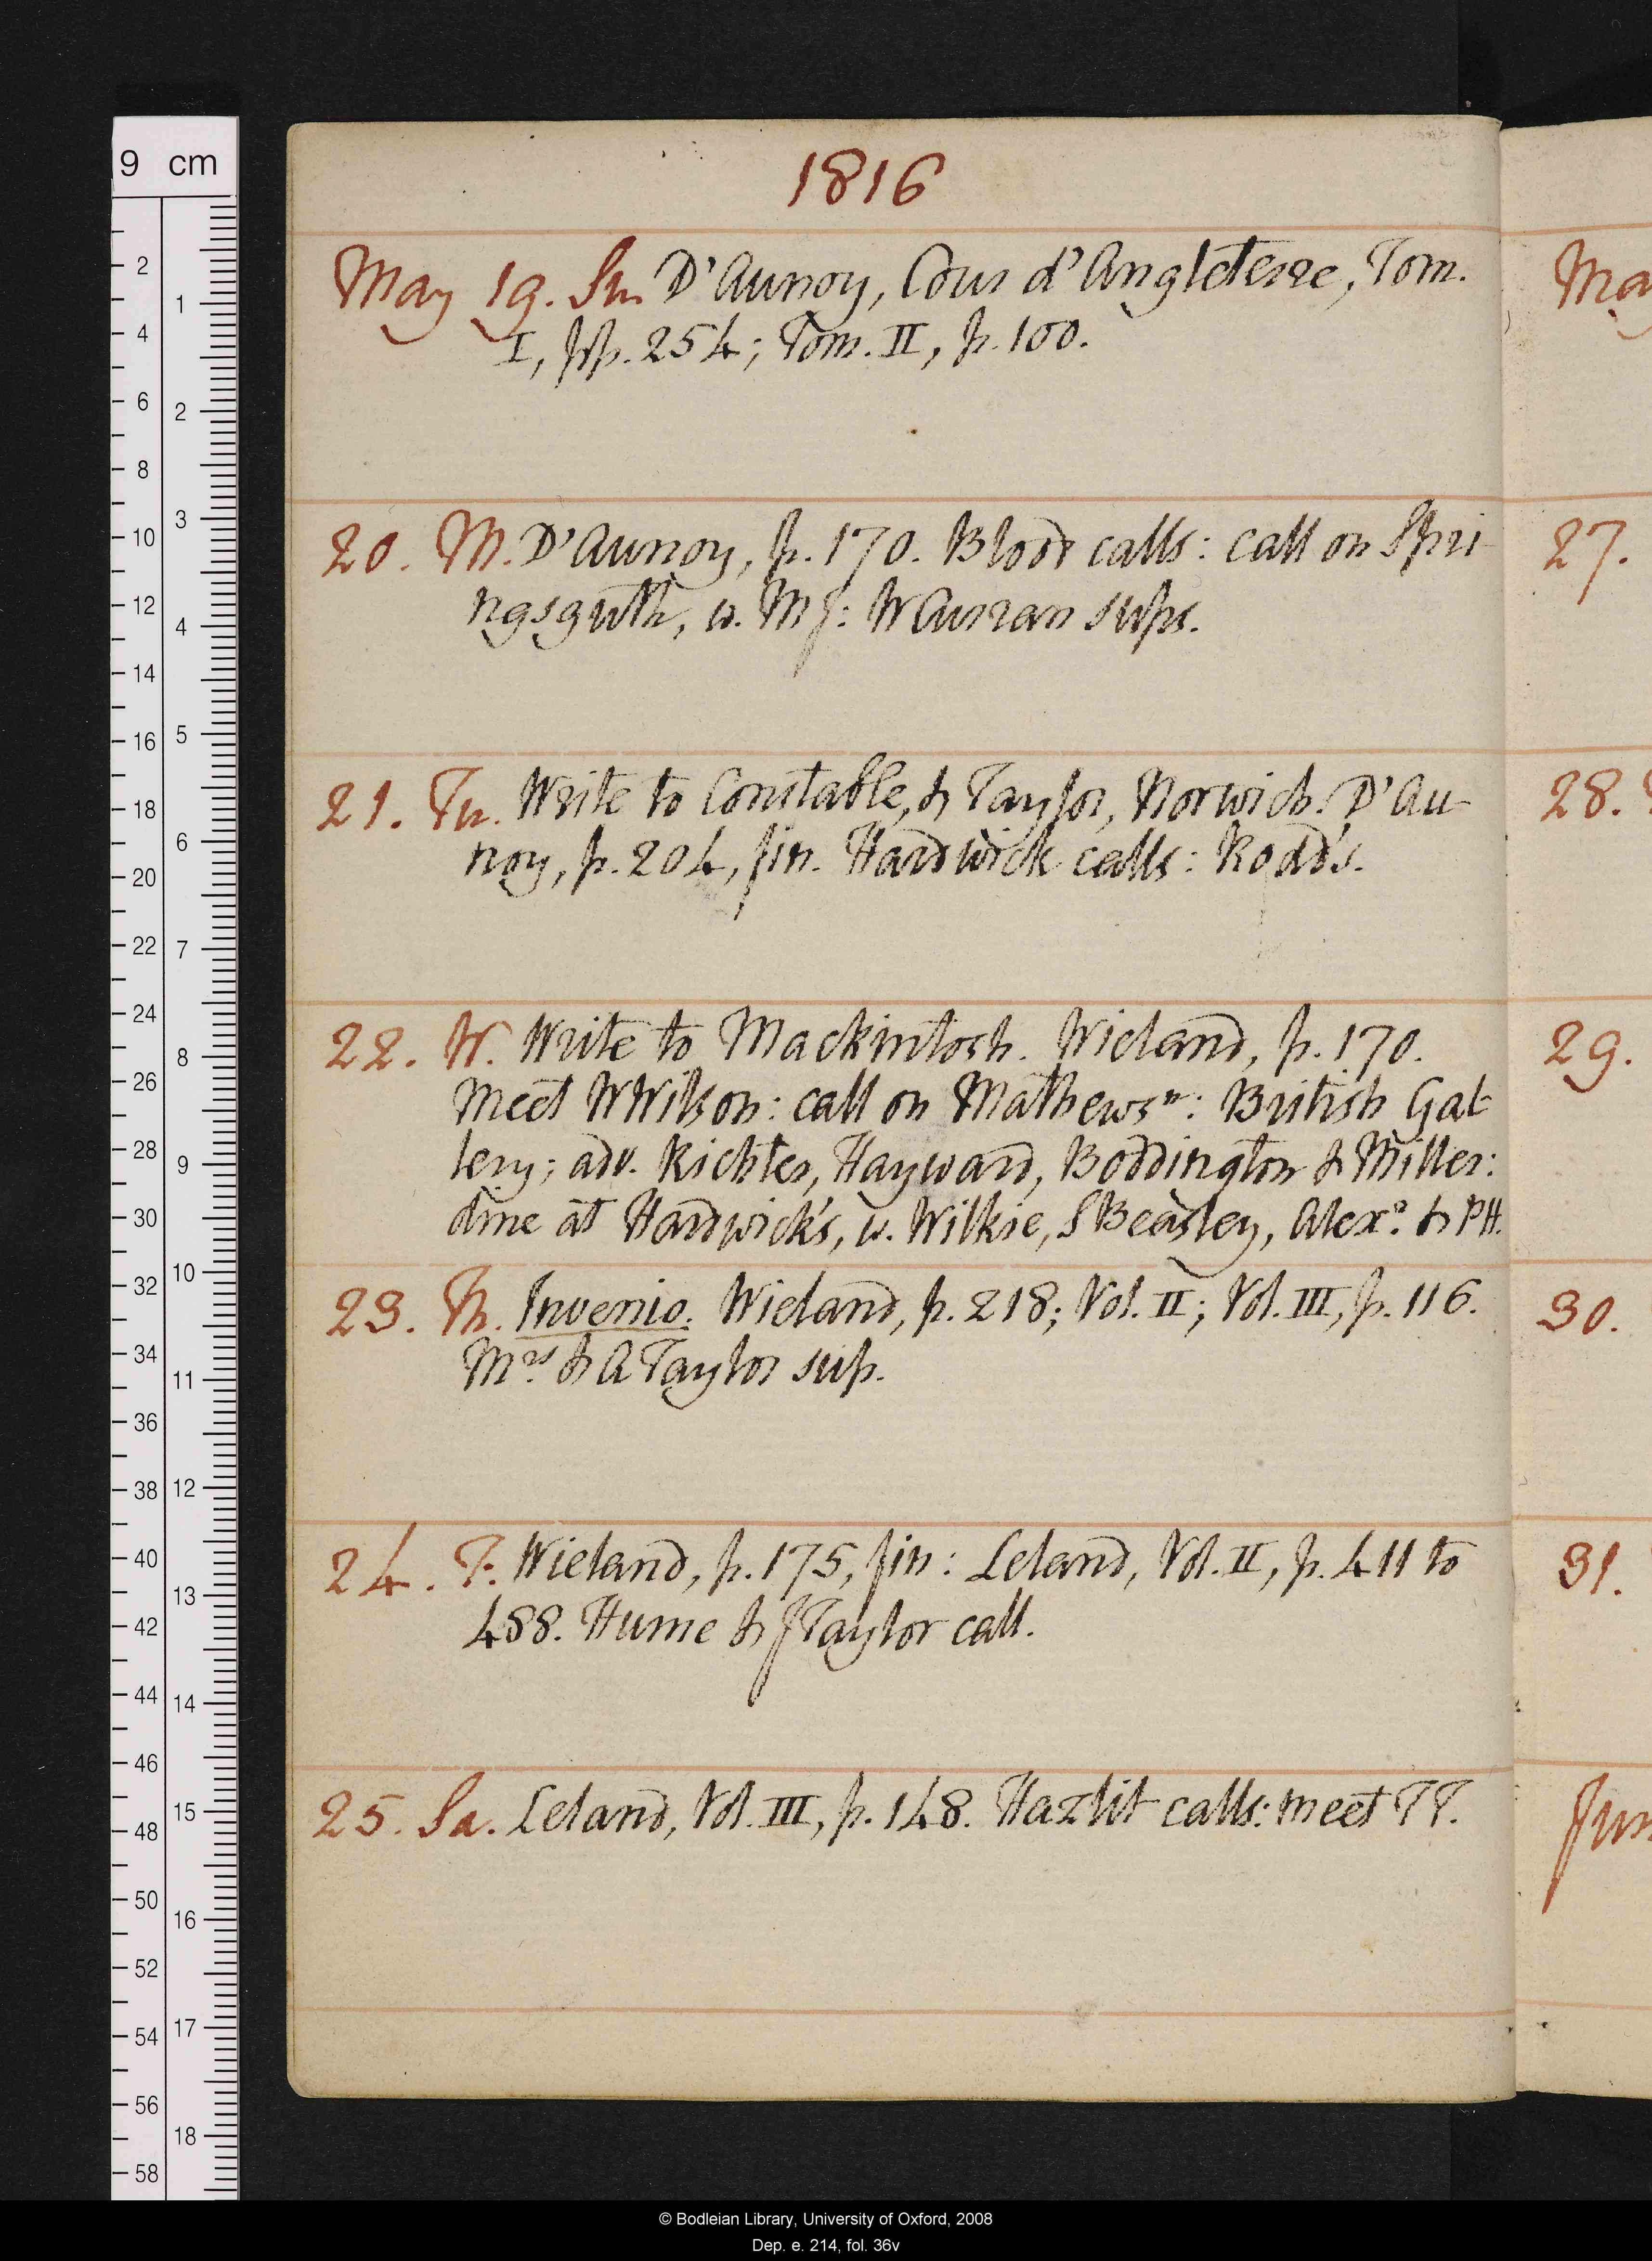 1816
May 19. Su. D'Aunoy, Cour d'Angleterre, Tom.
I, pp. 254; Tom. II, p. 100.
20. M. D'Aunoy, p. 170. Blood calls: call on Spri-
ngsguth, w. MJ: W Curran sups.
21. Tu. Write to Constable, & Taylor, Norwich. D'Au-
noy, p. 204, fin. Hardwick calls: Rodd's.
22. W. Write to Mackintosh. Wieland, p. 170.
Meet WWilson: call on Mathewsn: British Gal-
lery; adv. Richter, Hayward, Boddington & Miller:
dine at Hardwick's, w. Wilkie, SBeasley, Alexr. & PH.
23. Th. Invenio. Wieland, p. 218; Vol. II; Vol. III, p. 116.
Mrs & A Taylor sup.
24. F. Wieland, p. 175, fin: Leland, Vol. II, p. 411 to
488. Hume & JTaylor call.
25. Sa. Leland, Vol. III, p. 148. Hazlit calls: meet TT.
Ma
27.
28.
29.
30.
31.
Jun
9 cm
2
4
6
8
10
12
14
16
18
20
22
24
26
28
30
32
34
36
38
40
42
44
46
48
50
52
54
56
58
1
2
3
4
5
6
7
8
9
10
11
12
13
14
15
16
17
18
© Bodleian Library, University of Oxford, 2008
Dep. e. 214, fol. 36v